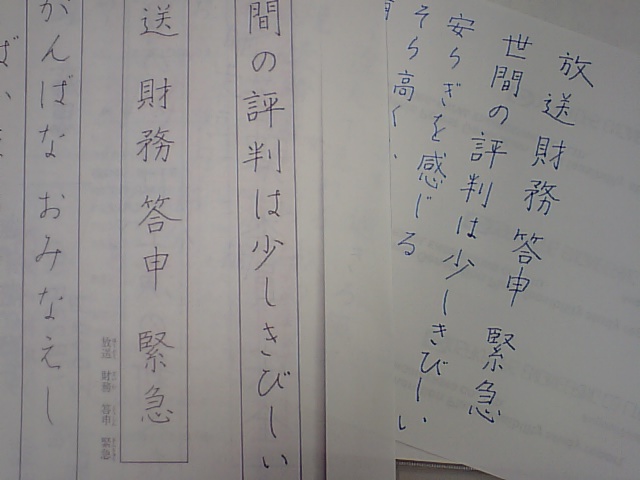 放送 財務 答申 緊急
世間の評判は少しきびしい
安らぎを感じる
そら高く、
間の評判は少しきびしい
送 財務 答申 緊急
放送 財務 答申 緊急
がんばな おみなえし